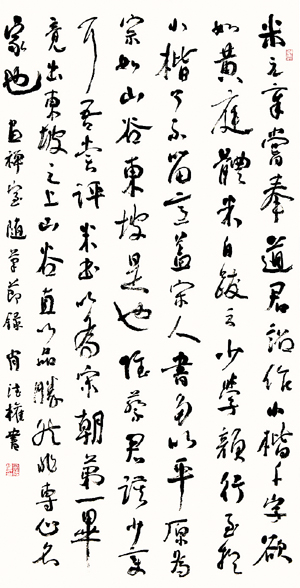 米元章嘗奉道君詔作小楷千字欲
如黃庭體米自跋云少學顏行至於
小楷了不留意蓋宋人書多以平原為
宗如山谷東坡是也惟蔡君謨少變
耳吾嘗評米書以為宋朝第一畢
竟出東坡之上山谷直以品勝然非專門名
家也 畫禪室隨筆節錄 肖法權書